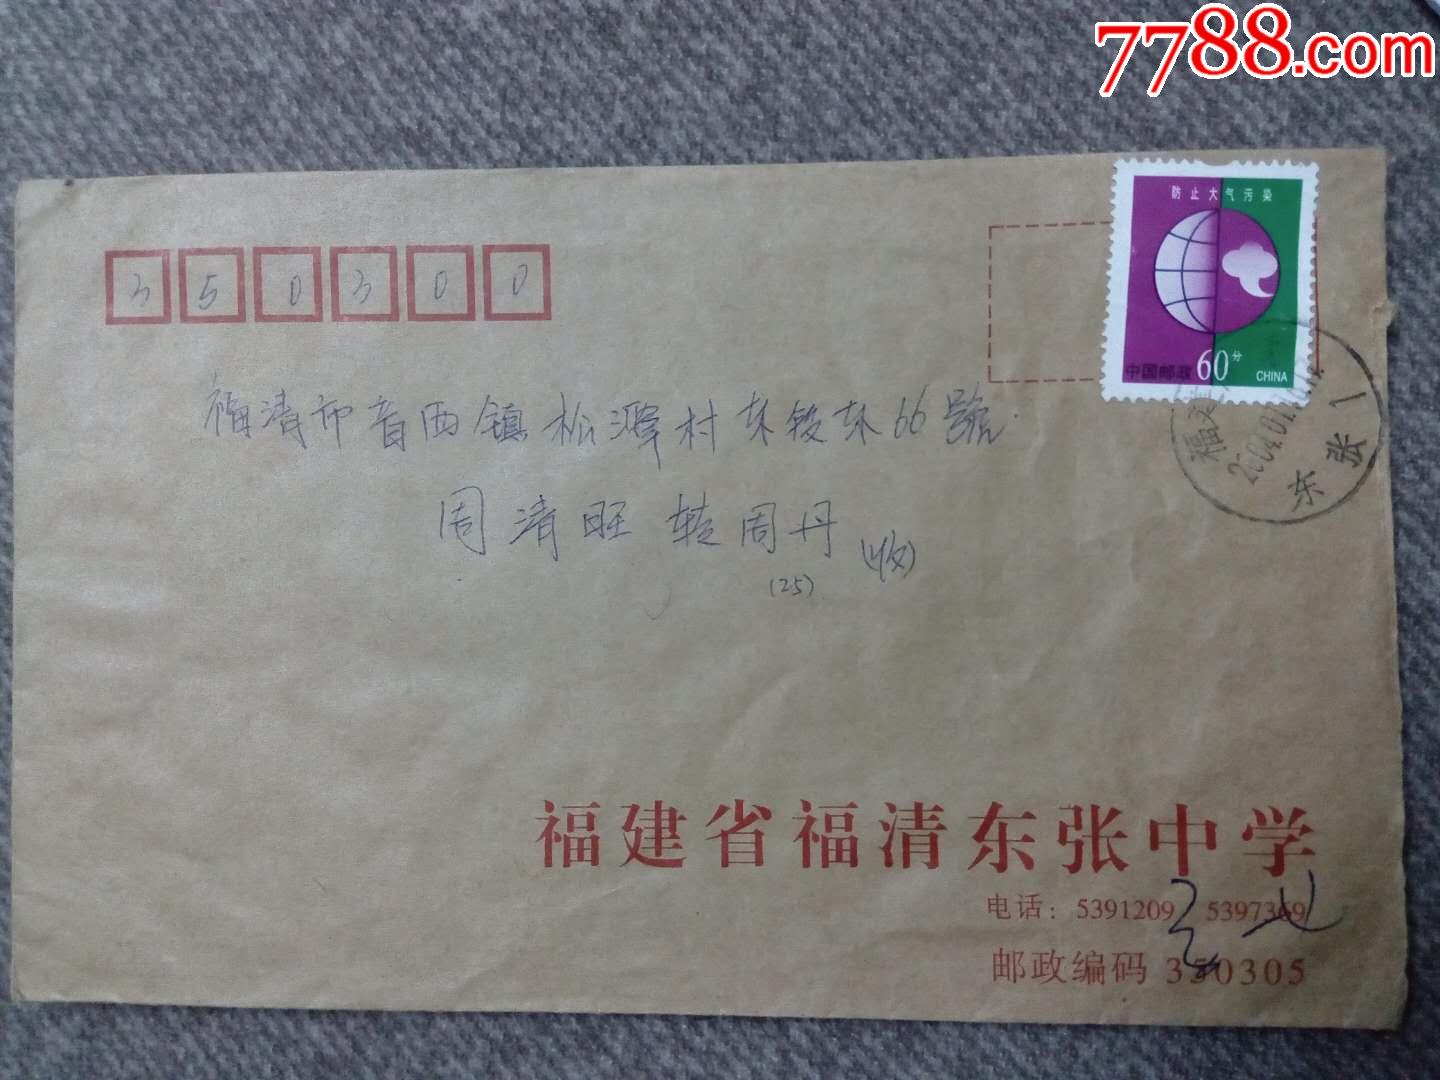 7788.com
防止大气污染
中国邮政 60分 CHINA
350300
福建
2004.01
东张 1
福清市音西镇松潭村东皎东66號
周清旺 转周丹 (收)
(25)
福建省福清东张中学
电话: 5391209 5397369
邮政编码 350305